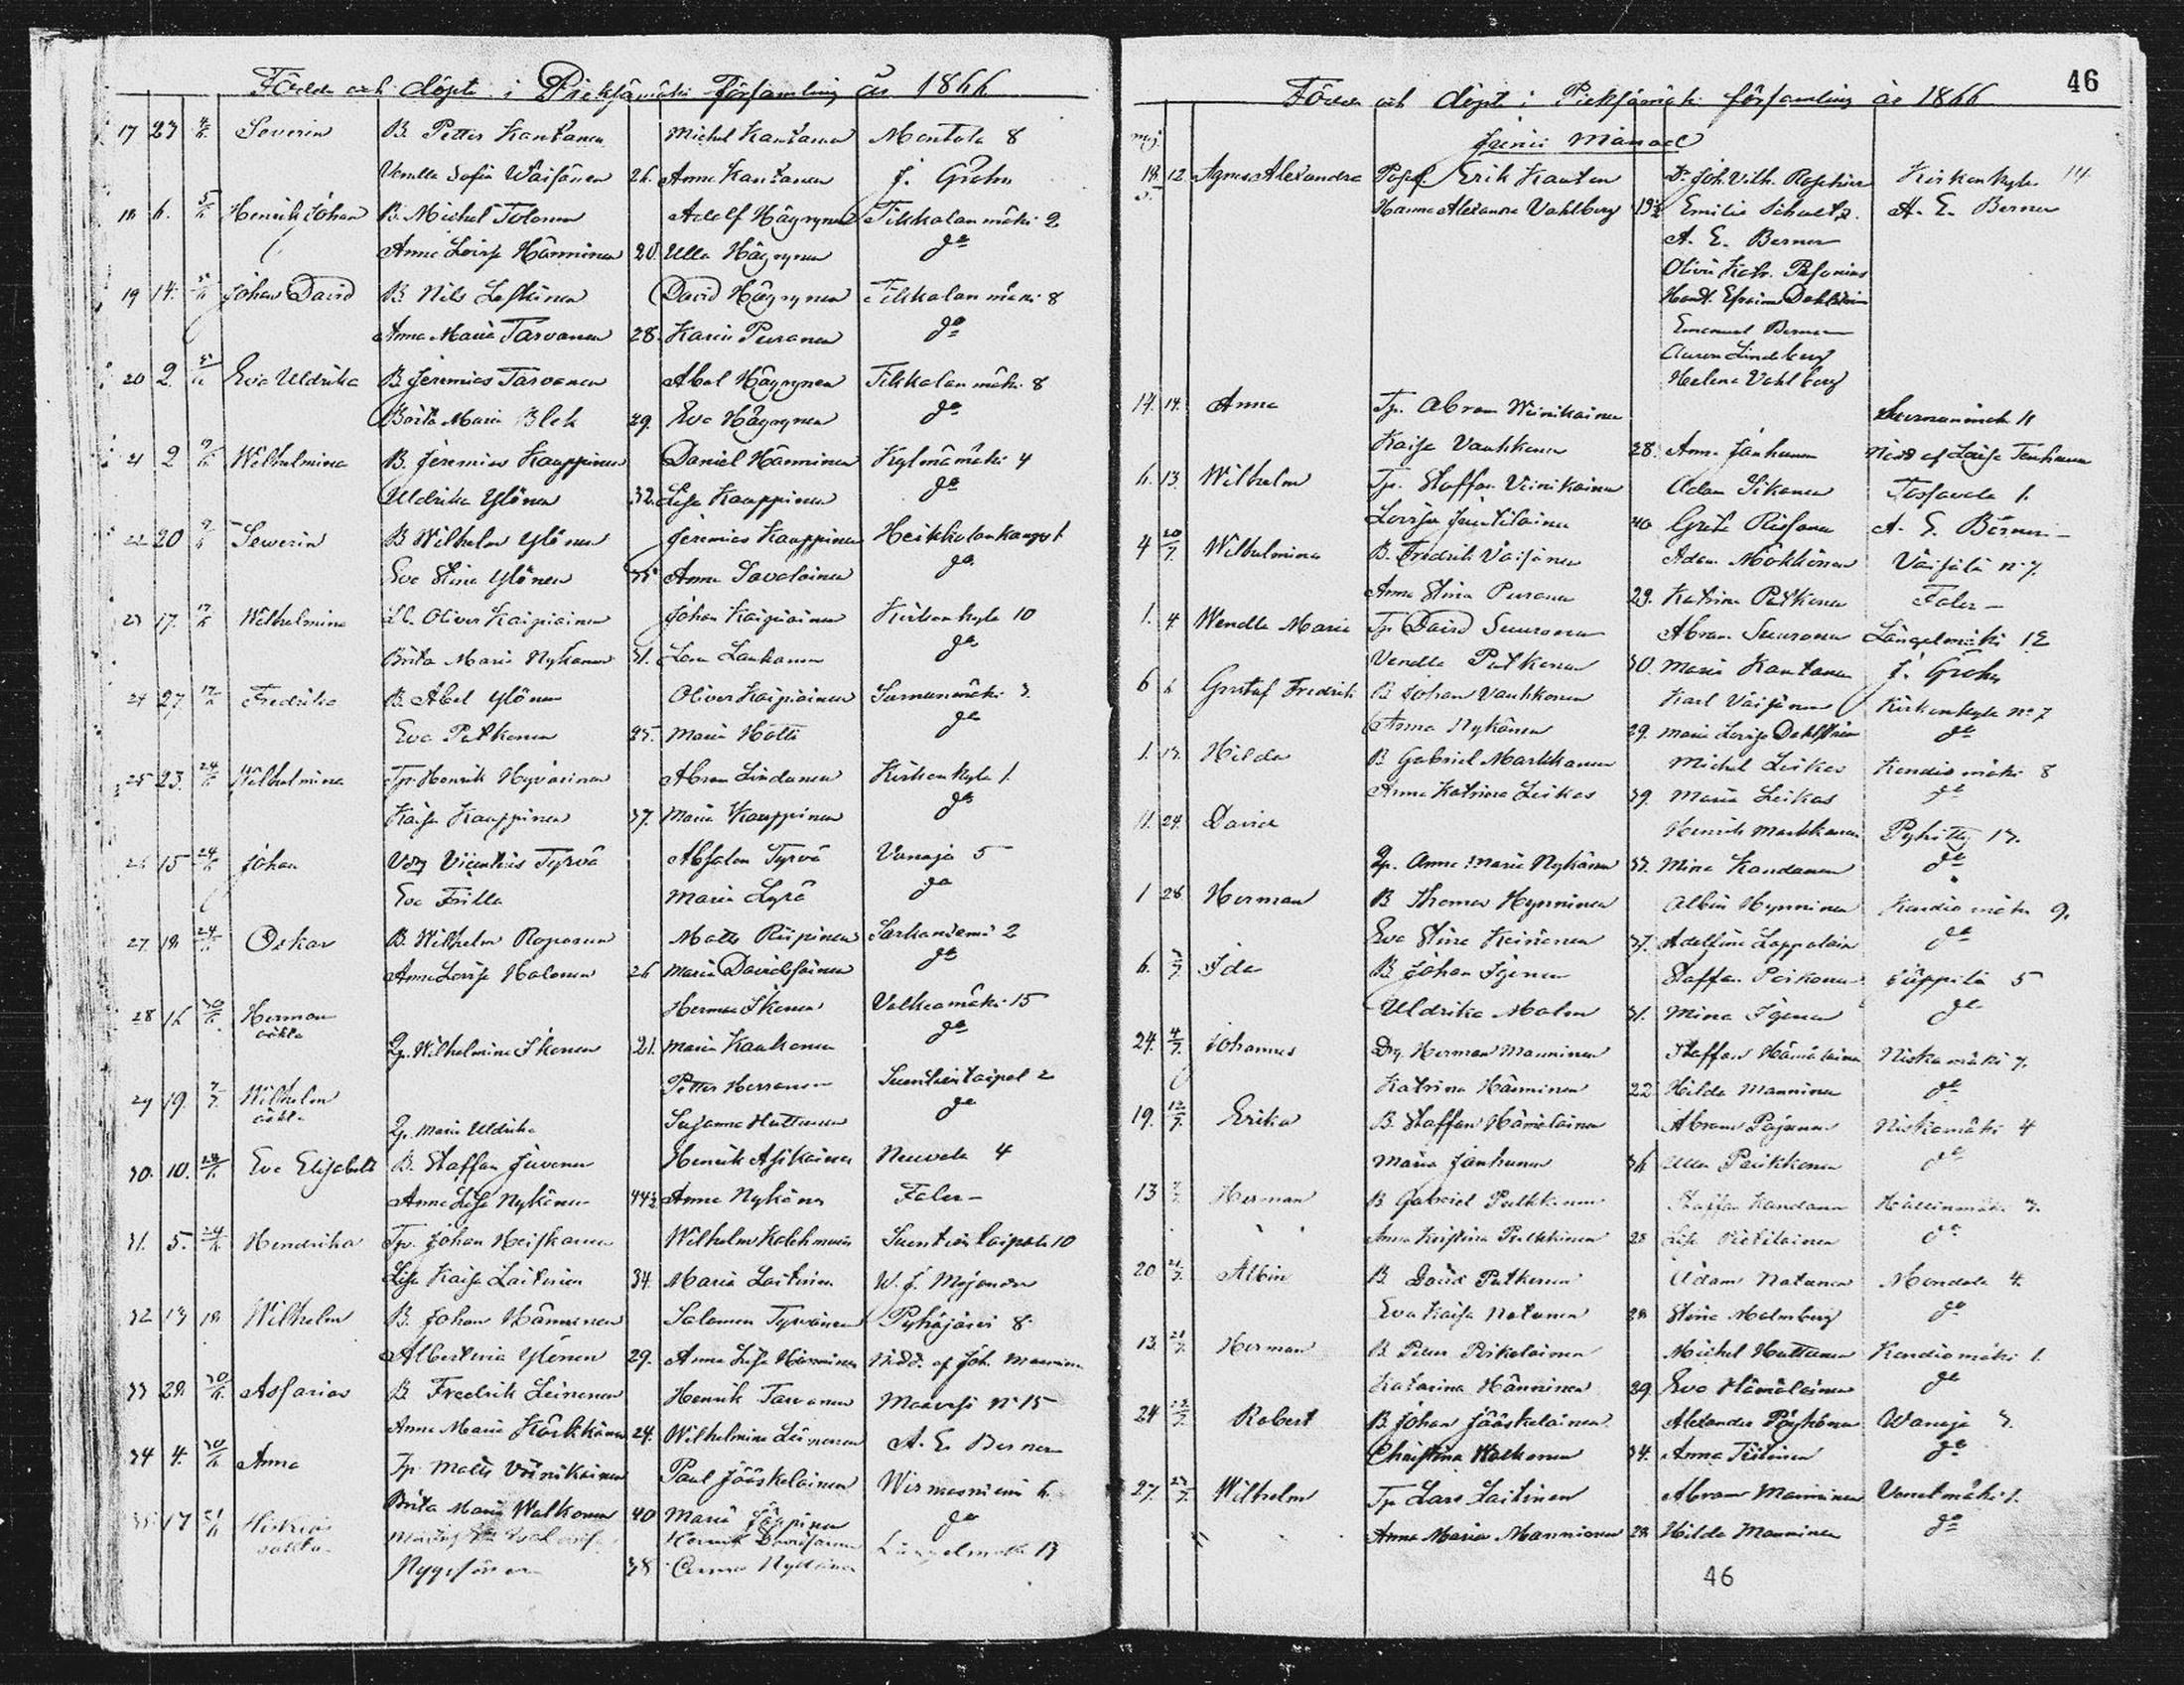 Födde och döpte i Pieksämäki Församling år 1866
17 23 4/6 Severin B. Petter Kautanen Michel Kautanen Montola 8
Vendla Sofia Wäisänen 26. Anna Kautanen J. Grohn
18 6. 5/6 Henrik Johan B. Michel Tolonen Adolf Häyrynen Tikkalanmäki 2
Anna Lovisa Hänninen 20. Ulla Häyrynen da
19 14. Johan David B. Nils Leskinen David Häyrynen Tikkalanmäki 8
Anna Maria Tarvanen 28. Karin Puranen da
20 2. Eva Uldrika B. Jeremias Tarvanen Abel Häyrynen Tikkalanmäki 8
Brita Maria Blek 29. Eva Häyrynen da
21 2 Wilhelmina B. Jeremias Kauppinen Daniel Hänninen Kylmämäki 4
Uldrika Ylönen 32. Lisa Kauppinen da
22 20 Sewerin B Wilhelm Ylönen Jeremias Kauppinen Heikkolankangas 1
Eva Stina Ylönen 35 Anna Savolainen da
23 17. 17/6 Wilhelmina Oliver Kaipiainen Johan Kaipiainen Kirkonkyla 10
Brita Maria Nykänen 31. Lena Laukanen da
24 27 17/6 Fredrika B. Abel Ylönen Oliver Kaipiainen Surnumäki 3.
Eva Putkonen 25. Maria Hotti da
25 23. 24/6 Wilhelmina Tp. Henrik Hyvärinen Abram Lindunen Kirkonkyla 1.
Kaisa Kauppinen 37. Maria Kauppinen da
26 15 24/6 Johan Vicentius Tyrvä Absalon Tyrvä Vanaja 5
Eva Frilla Maria Lyrä da
27. 18. 24/6 Oskar B. Wilhelm Roponen Matts Riipinen Särkaniemi 2
Anna Lovisa Halonen 26 Maria Davidsainen da
28 16 30/6 Herman Herman Ikonen Valkeamäki 15
oäkta Qp. Wilhelmina Ikonen 21. Maria Kaukonen da
29 19. 7/7. Wilhelm Petter Herranen Suentientaipal 2
oäkta Qp. Maria Uldrika Susanna Huttunen da
30. 10. Eva Elisabeth B. Staffan Juvonen Henrik Asikainen Neuvola 4
Anna Lisa Nykänen 44½ Anna Nykänen Faler
31. 5. 24/6 Hendrika Tp. Johan Heiskanen Wilhelm Kolehmain Suentientaipale 10
Lisa Kaisa Laitinen 34. Maria Laitinen W. J. Mojander
32 13 18 Wilhelm B. Johan Hänninen Salomon Tyrväinen Pyhäjärvi 8
Albertina Ylönen 29. Anna Lisa Hänninen Nöd. af Joh. Manninen
33 29. 30/6 Assarias B Fredrik Leinonen Henrik Tarvanen Maavesi No 15
Anna Maria Kärkkäinen 24. Wilhelmina Leinonen A. E. Berner
34 4. 30/6 Anna Tp. Matts Viinikainen Paul Jääskeläinen Wirmasniemi 6.
Brita Maria Walkonen 40 Maria Jäppinen da
35 17 Längelmäki 13
38
46
Födde och döpt i Pieksämäki församling år 1866
Junii Månad
maj.
18. 12. Agnes Alexandra Erik Kauten Dr Joh. Vilh. Roschier Kirkonkyla 14
Hanna Alexandra Vahlberg 19½ Emilie Schultz. A. E. Berner
A. E. Berner
Olivia Katr. Pesonius
Handl. Efraim Dahlström
Emanuel Berner
Auron Lindberg
Helena Vahlberg
14. 14. Anna Tp. Abram Wiinikainen Surnumäki 11
Kaisa Vauhkonen 28. Anna Janhunen Nöd af Loisa Tenhunen
6. 13. Wilhelm Tp. Staffan Viinikainen Adam Sikanen Tossavala 1.
Lovisa Juutilainen 40 Greta Rissanen A. E. Berner
4 20/7. Wilhelmina B. Fredrik Väisänen Adam Mökkönen Väisälä No 7.
Anna Stina Puranen 29. Katrina Putkonen Faler
1. 4. Wendla Maria Tp. David Suuronen Abram Suuronen Längelmäki 12
Vendla Putkonen 30. Maria Kautanen J. Grohn
6 6 Gustaf Fredrik B Johan Vauhkonen Karl Väisänen Kirkonkyla No 7
Anna Nykänen 29. Maria Lovisa Dahlström da
1. 17. Hilda B Gabriel Markkanen Michel Leikas Kendismäki 8
Anna Katrina Leikas 39. Maria Leikas da
11. 24. David Henrik Markkanen Pyhitty 13.
Qp. Anna Maria Nykänen 37. Mina Kandanen da
1 28 Herman B Thomas Hynninen Albin Hynninen Kendismäki 9.
Eva Stina Keinonen 37. Adolfina Lappalain da
6. 3/7. Ida B Johan Igonen Staffan Poikonen Jäppilä 5
Uldrika Malin 31. Mina Igonen da
24. 4/7. Johannes Drg. Herman Manninen Staffan Hämäläinen Niskamäki 7.
Katrina Hänninen 22 Hilda Manninen da
19. 12/7. Erika B. Staffan Hämäläinen Abram Pajunen Niskamäki 4
Maria Janhunen 36 Ulla Parikkonen da
13 Herman B Gabriel Pulkkinen Staffan Kandanen Hällinmäki 3.
Anna Kristina Pulkkinen 28 Lisa Pietiläinen da
20 21/7. Albin B. David Putkonen Adam Natunen Mondola 4.
Eva Kaisa Natunen 28 Stina Malmberg da
13. 21/7. Herman B. Petter Pirkolainen Michel Huttunen Kendismäki 1.
Katarina Hänninen 29. Eva Hämäläinen da
24 Robert B Johan Jääskeläinen Alexander Pöyhönen Wanaja 3.
Christina Walkonen 34. Anna Tiitinen da
27. Wilhelm Tp. Lars Laitinen Abram Manninen Venetmäki 1.
Anna Maria Manninen 28 Hilda Manninen da
46